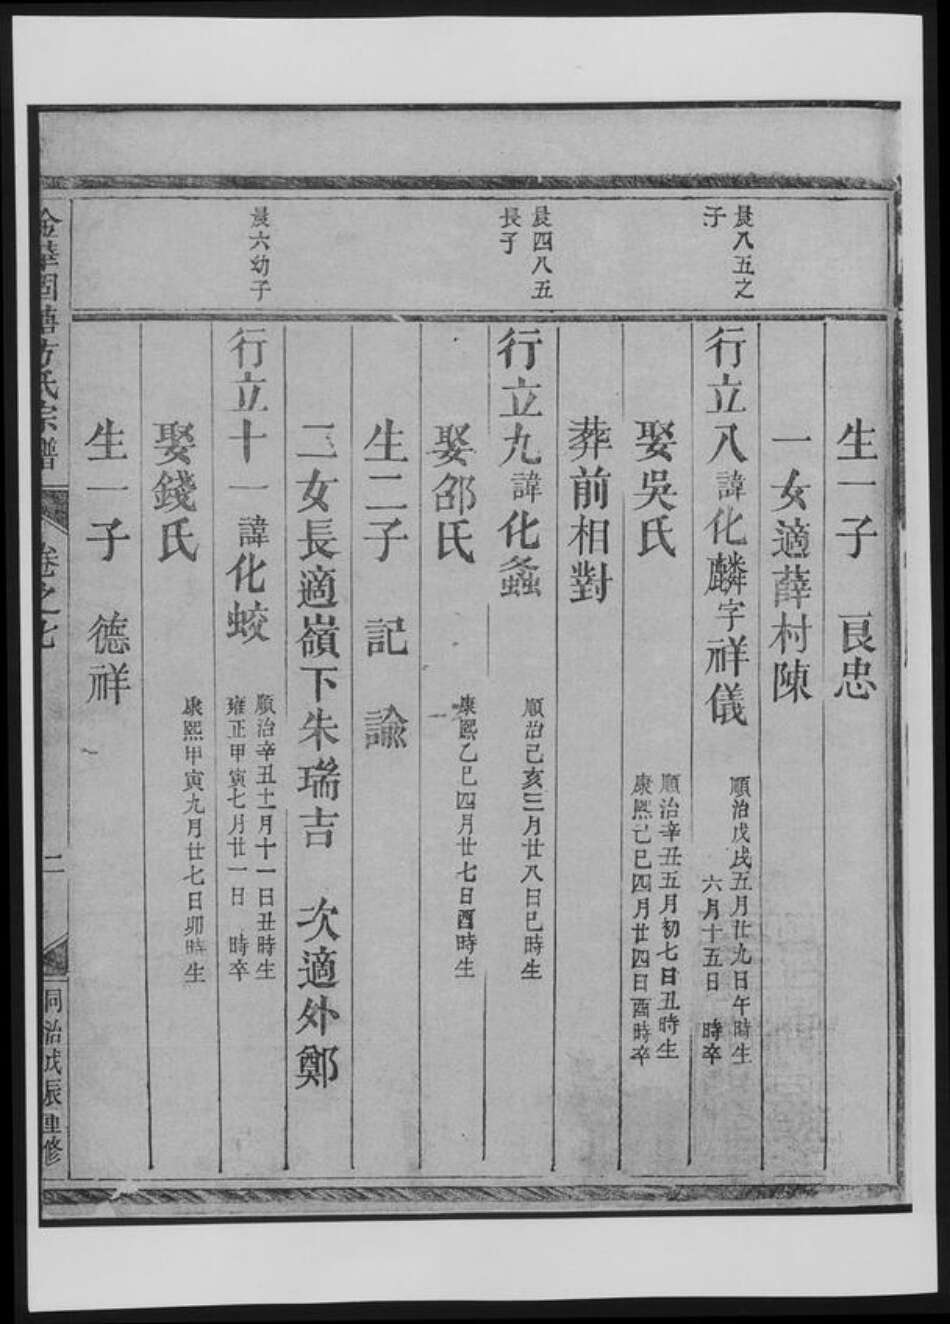 生一子 良忠
一女適薛村陳
晨八五之
子
行立八諱化麟字祥儀 順治戊戌五月廿九日午時生
六月十五日 時卒
娶吳氏 順治辛丑五月初七日丑時生
康熙己巳四月廿四日酉時卒
葬前相對
晨四八五
長子
行立九諱化螽 順治己亥三月廿八日巳時生
娶邵氏 康熙乙巳四月廿七日酉時生
生二子 記 諭
二女長適嶺下朱瑞吉 次適外鄭
晨六幼子
行立十一諱化蛟 順治辛丑十一月十一日丑時生
雍正甲寅七月廿一日 時卒
娶錢氏 康熙甲寅九月廿七日卯時生
生一子 德祥
金華 方氏宗譜 卷之七 二 同治戊辰重修